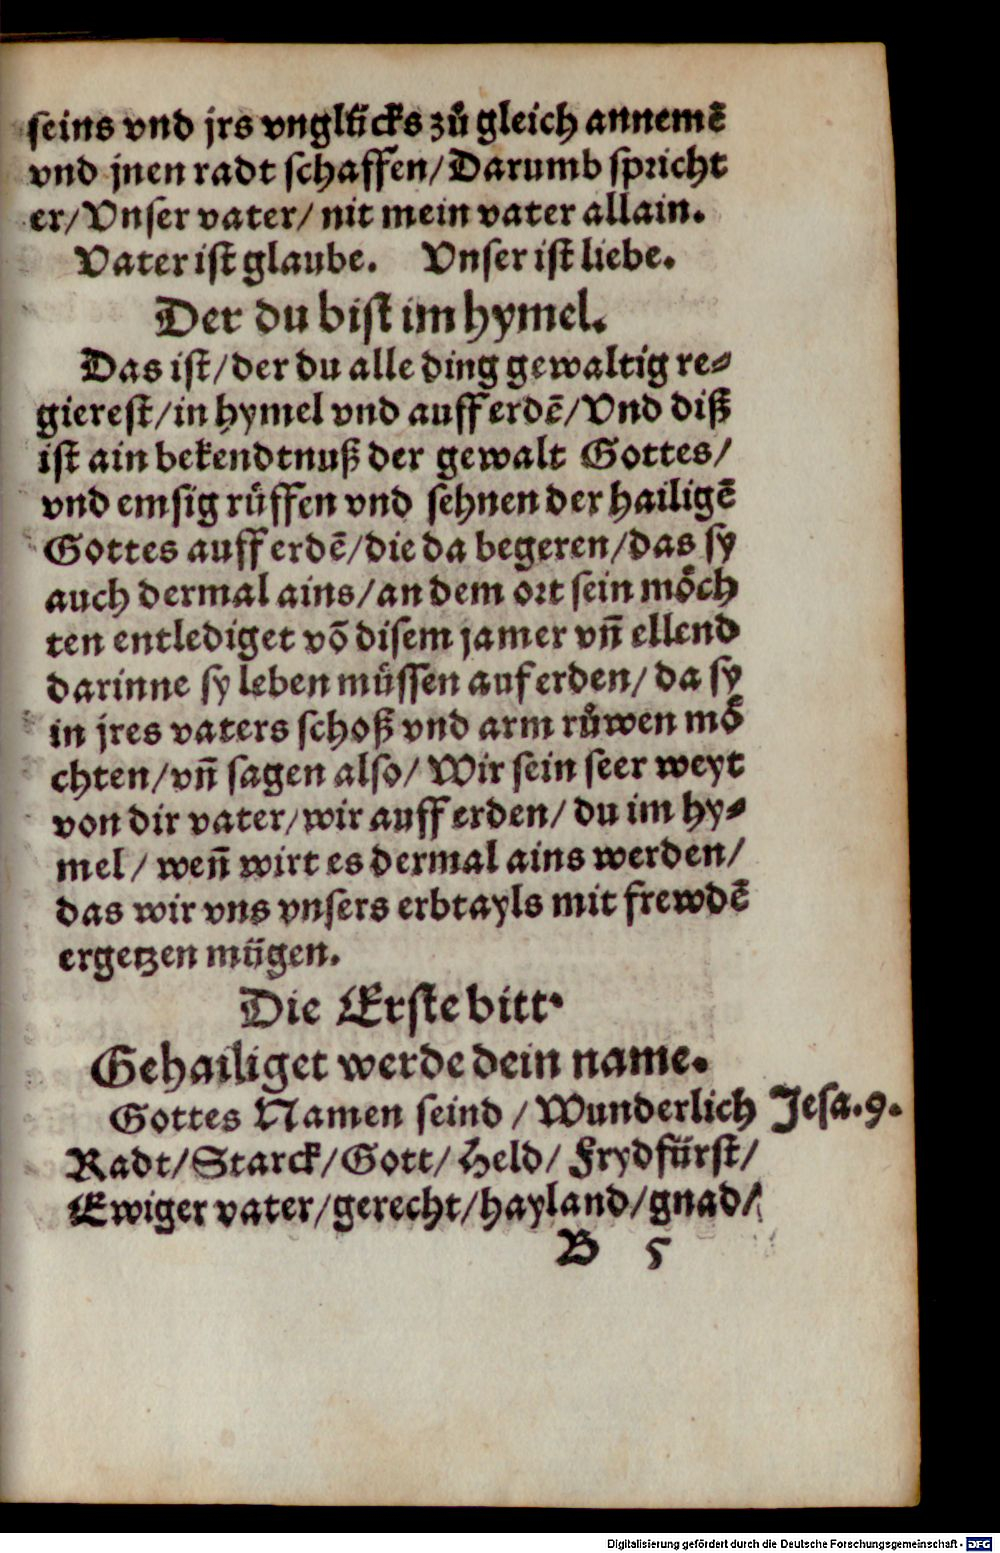 seins vnd jrs vnglücks zů gleich annemẽ
vnd jnen radt schaffen/Darumb spricht
er/Vnser vater/ nit mein vater allain.
Vater ist glaube. Vnser ist liebe.
Der du bist im hymel.
Das ist/der du alle ding gewaltig re⸗
gierest/in hymel vnd auff erdẽ/Vnd diß
ist ain bekendtnuß der gewalt Gottes/
vnd emsig rüffen vnd sehnen der hailigẽ
Gottes auff erdẽ/die da begeren/das sy
auch dermal ains/an dem ort sein möch
ten entlediget võ disem jamer vñ ellend
darinne sy leben müssen auf erden/ da sy
in jres vaters schoß vnd arm růwen mö
chten/vñ sagen also/ Wir sein seer weyt
von dir vater/wir auff erden/ du im hy⸗
mel/ weñ wirt es dermal ains werden/
das wir vns vnsers erbtayls mit frewdẽ
ergetzen mügen.
Die Erste bitt.
Gehailiget werde dein name.
Gottes Namen seind /Wunderlich Jesa.9.
Radt/Starck/Gott/ Held/ Frydfürst/
Ewiger vater/gerecht/hayland/gnad/
B 5
Digitalisierung gefördert durch die Deutsche Forschungsgemeinschaft - DFG